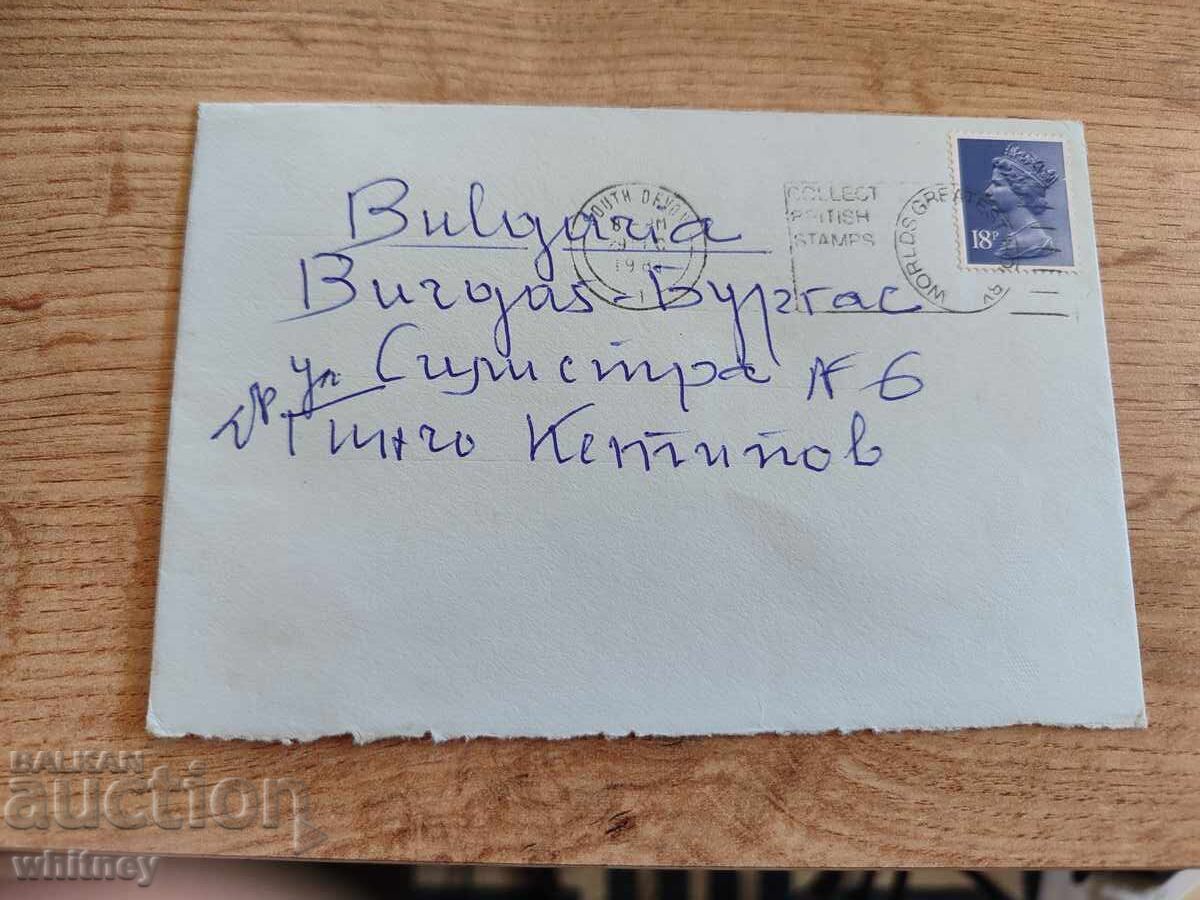 Bulgaria
Burgas - Бургас
ул Силистра № 6
Гинчо
SOUTH DEVON
COLLECT
BRITISH
STAMPS
WORLDS GREATEST
18P
BALKAN
auction
whitney